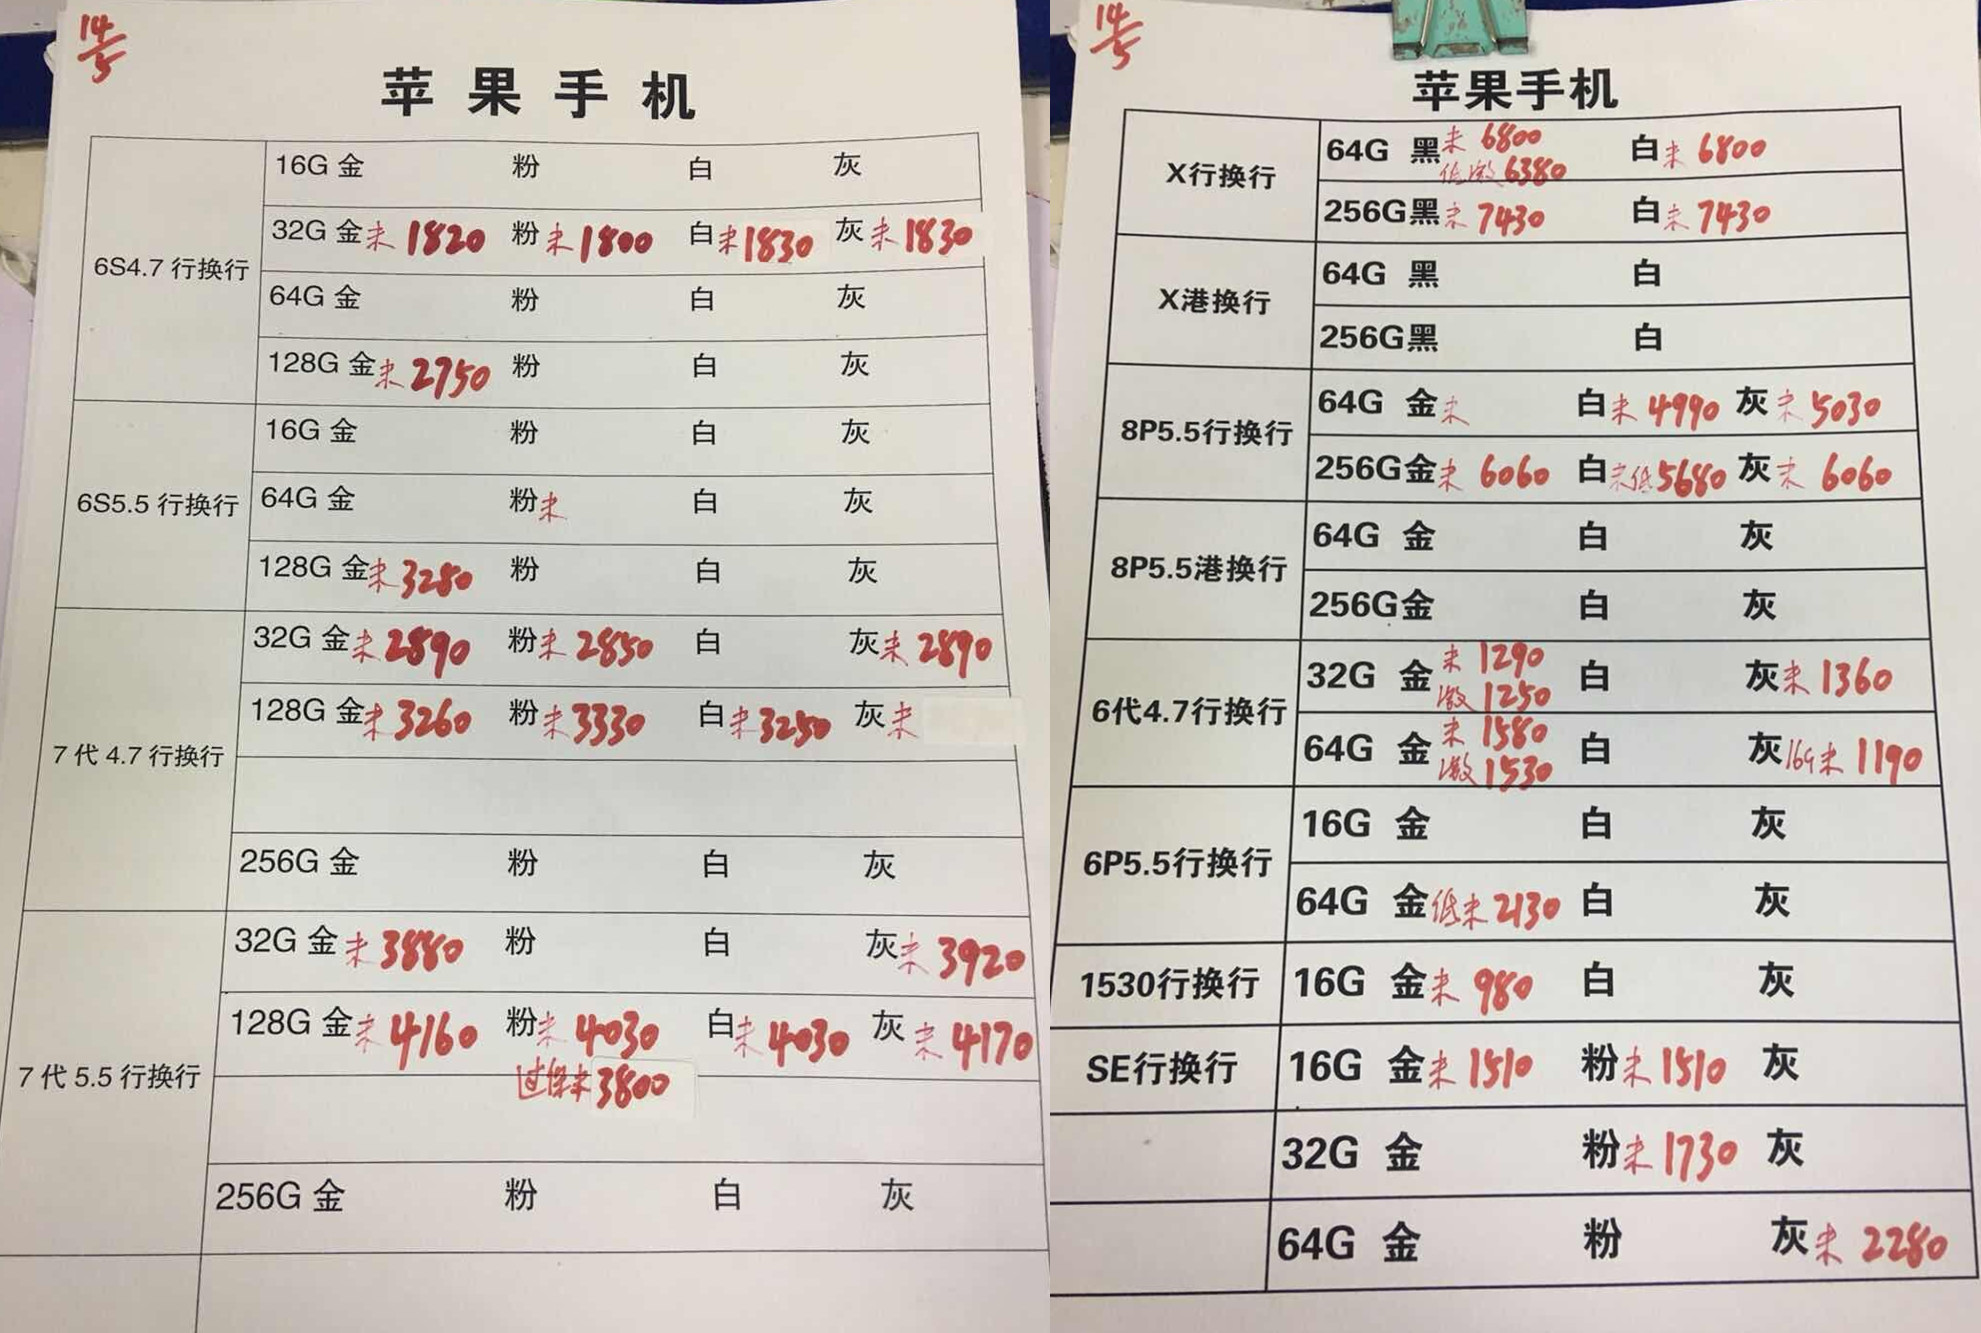 14/5
苹果手机
6S4.7 行换行
16G 金 粉 白 灰
32G 金 未 1820 粉 未 1800 白 未 1830 灰 未 1830
64G 金 粉 白 灰
128G 金 未 2750 粉 白 灰
6S5.5 行换行
16G 金 粉 白 灰
64G 金 粉 未 白 灰
128G 金 未 3280 粉 白 灰
7 代 4.7 行换行
32G 金 未 2890 粉 未 2850 白 灰 未 2890
128G 金 未 3260 粉 未 3330 白 未 3250 灰 未
256G 金 粉 白 灰
7 代 5.5 行换行
32G 金 未 3880 粉 白 灰 未 3920
128G 金 未 4160 粉 未 4030 白 未 4030 灰 未 4170
过保未 3800
256G 金 粉 白 灰
14/5
苹果手机
X行换行
64G 黑 未 6800 白 未 6800
低激 6380
256G黑 未 7430 白 未 7430
X港换行
64G 黑 白
256G黑 白
8P5.5行换行
64G 金 未 白 未 4990 灰 未 5030
256G金 未 6060 白 未低 5680 灰 未 6060
8P5.5港换行
64G 金 白 灰
256G金 白 灰
6代4.7行换行
32G 金 未 1290 白 灰 未 1360
激 1250
64G 金 未 1580 白 灰 16G未 1190
激 1530
6P5.5行换行
16G 金 白 灰
64G 金 低未 2130 白 灰
1530行换行
16G 金 未 980 白 灰
SE行换行
16G 金 未 1510 粉 未 1510 灰
32G 金 粉 未 1730 灰
64G 金 粉 灰 未 2280